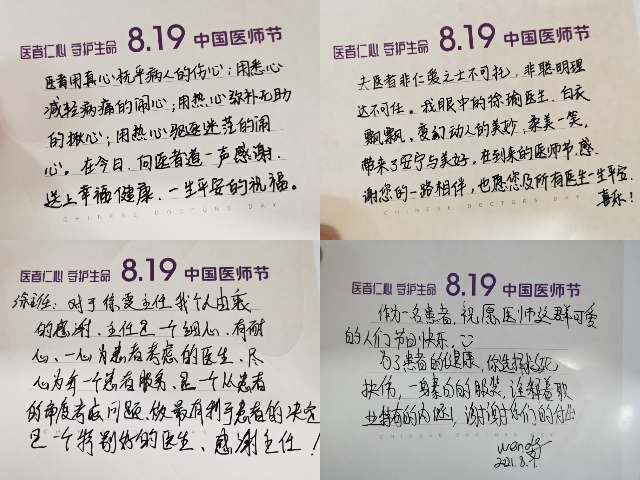 医者仁心 守护生命 8.19 中国医师节
医者用真心抚平病人的伤心；用悉心
减轻病痛的闹心；用热心弥补无助
的揪心；用热心驱逐迷茫的闹
心。在今日，向医者道一声感谢，
送上幸福健康，一生平安的祝福。
CHINESE DOCTORS DAY
医者仁心 守护生命 8.19 中国医师节
夫医者非仁爱之士不可托，非聪明理
达不可任。我眼中的徐瑜医生，白衣
飘飘，变幻动人的美妙，柔美一笑，
带来了安宁与美好。在到来的医师节，感
谢您的一路相伴，也愿您及所有医生一生平安，
喜乐！
CHINESE DOCTORS DAY
医者仁心 守护生命 8.19 中国医师节
徐主任：对于徐主任我个人由衷
的感谢，主任是一个细心，有耐
心，一心为患者考虑的医生，尽
心为每一个患者服务，是一个从患者
的角度考虑问题，做最有利于患者的决定
是一个特别好的医生，感谢主任！
医者仁心 守护生命 8.19 中国医师节
作为一名患者，祝愿医师这群可爱
的人们节日快乐。
为了患者的健康，你选择救死
扶伤，一身素白的服装，诠释着职
业特有的内涵，谢谢你们的付出
CHINESE DOCTORS DAY
2021.8.